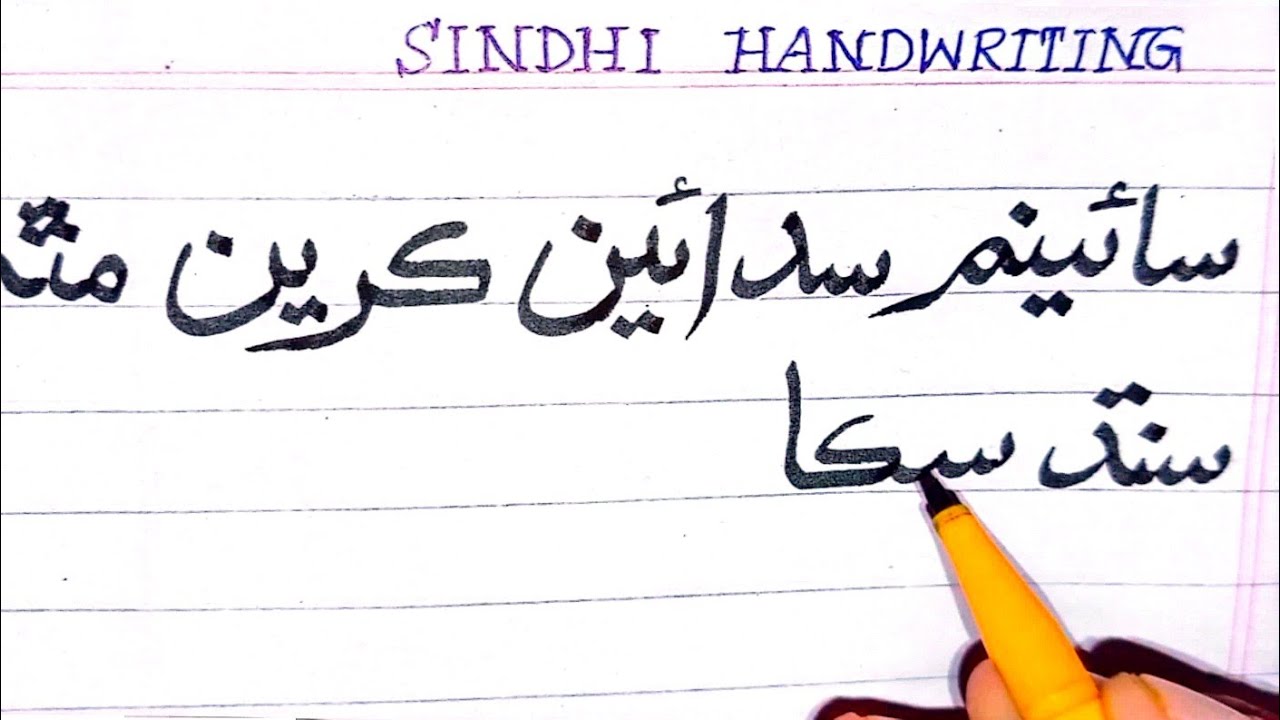 SINDHI HANDWRITING
سائينم سدائين ڪرين مٿ
سنڌ سڪا